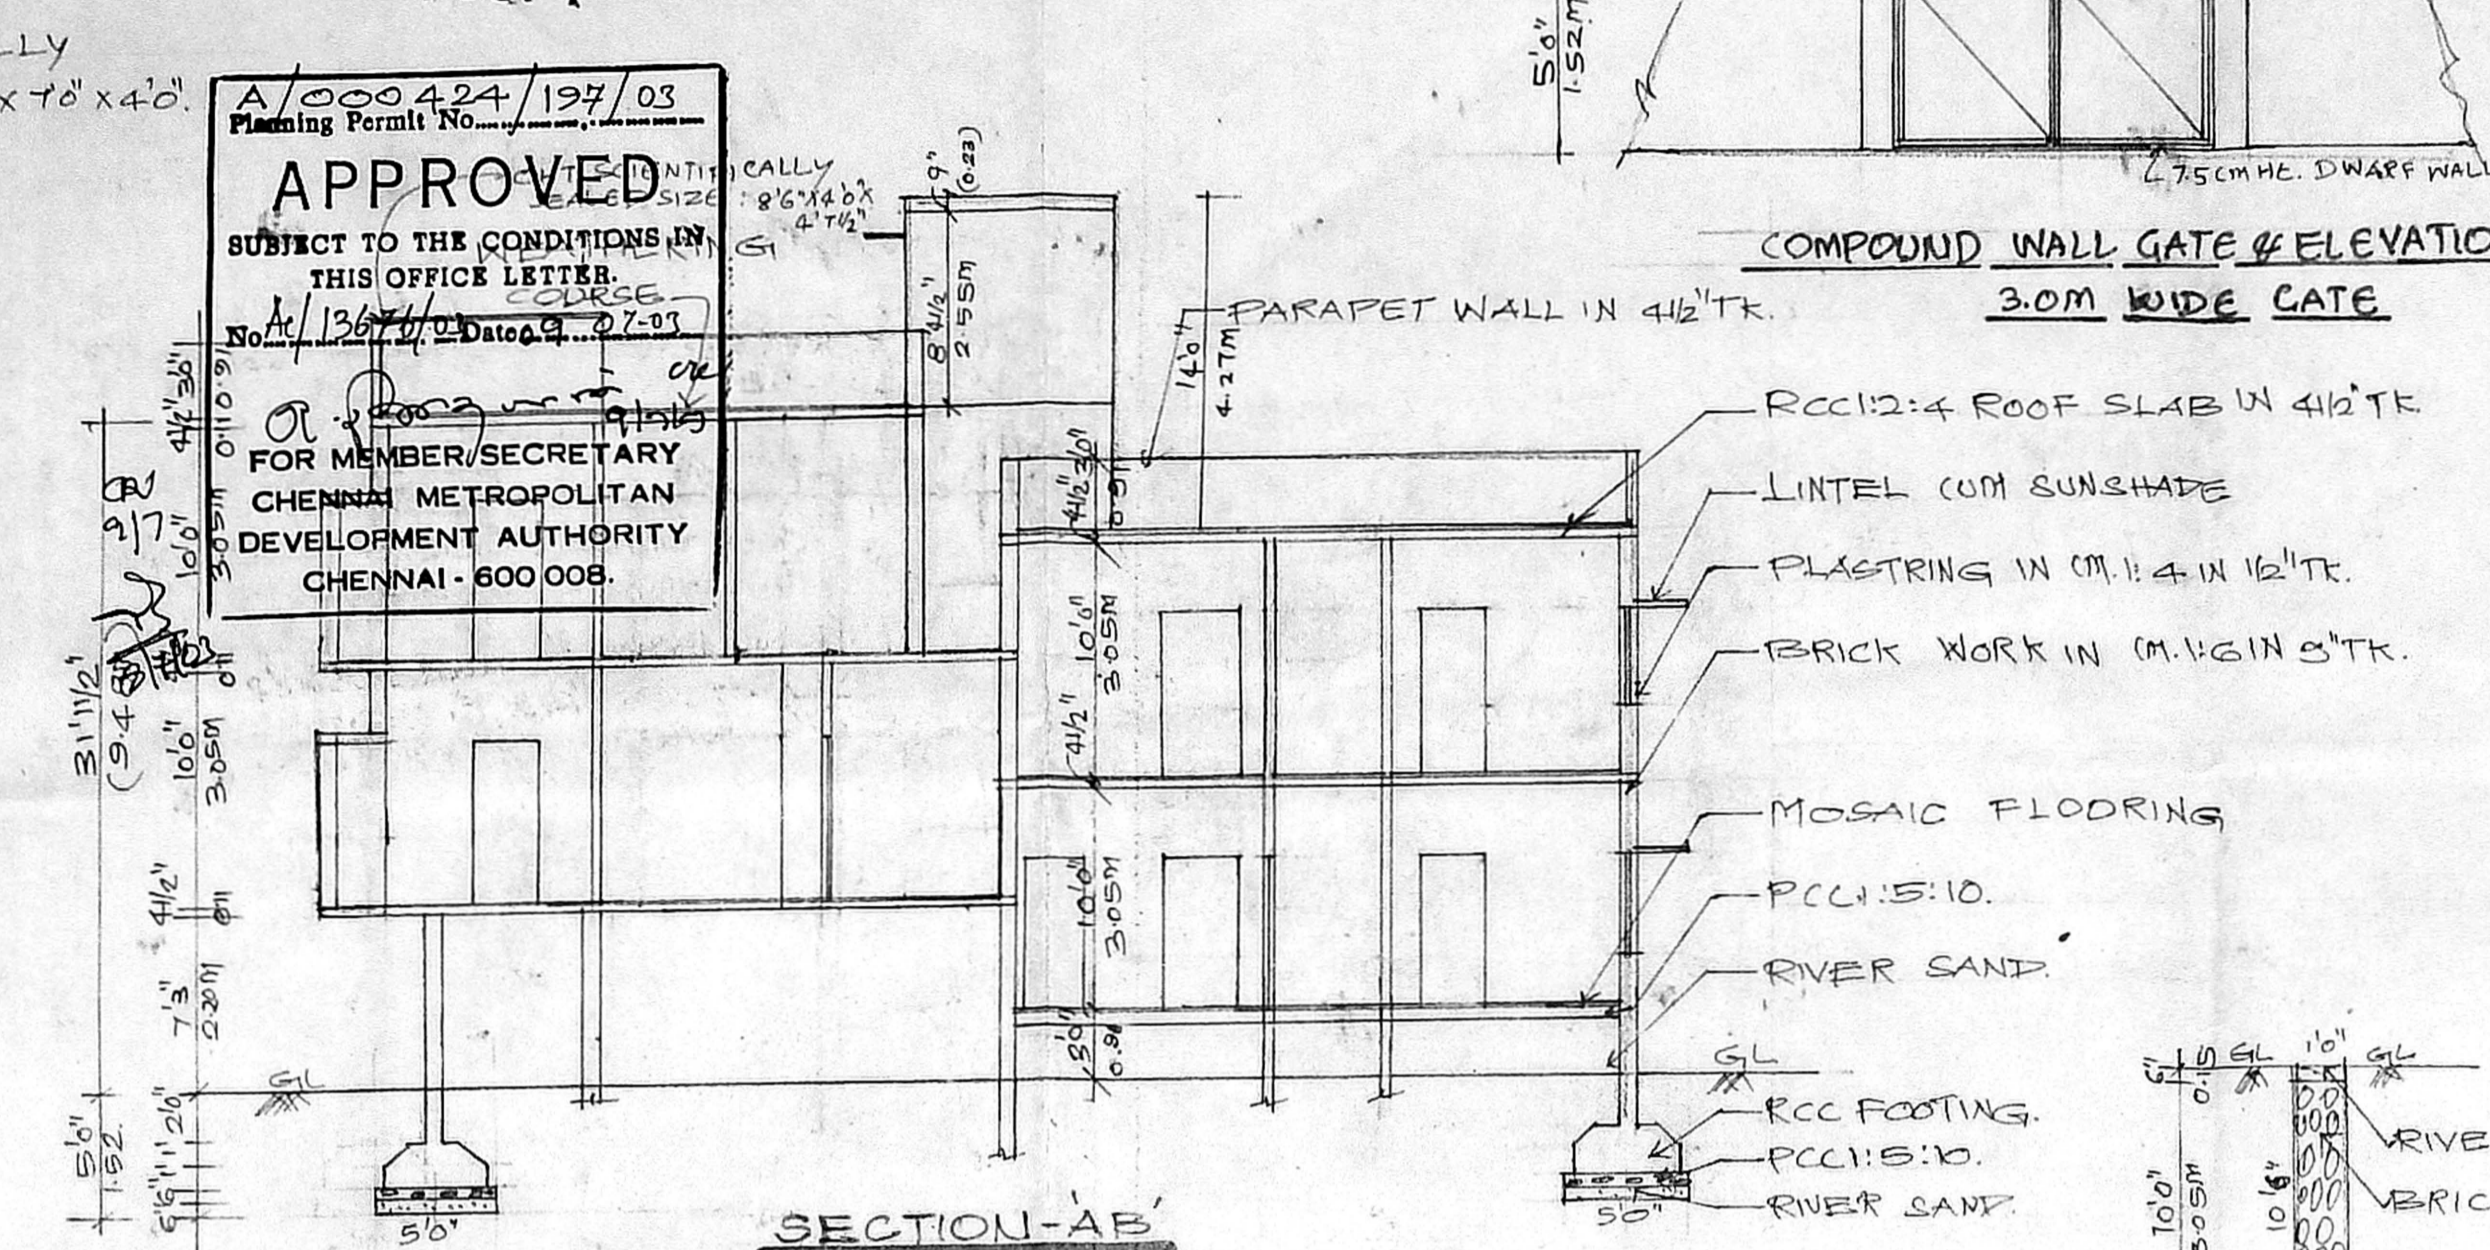 LLY
x 7'0" x 4'0".
A/000424/197/03
Planning Permit No.
APPROVED
SUBJECT TO THE CONDITIONS IN
THIS OFFICE LETTER.
No. Date 09.07-03
FOR MEMBER/SECRETARY
CHENNAI METROPOLITAN
DEVELOPMENT AUTHORITY
CHENNAI - 600 008.
SIZE: 8'6"X4'0"X
4'7½"
COURSE
9"
(0.23)
8'4½"
2.55M
14'0"
4.27M
5'0"
1.52M
7.5CM Ht. DWARF WALL
COMPOUND WALL GATE & ELEVATIO
3.0M WIDE GATE
PARAPET WALL IN 4½"TK.
RCC1:2:4 ROOF SLAB IN 4½"TK.
LINTEL CUM SUNSHADE
PLASTRING IN CM.1:4 IN ½"TK.
BRICK WORK IN CM.1:6 IN 9"TK.
MOSAIC FLOORING
PCC1:5:10.
RIVER SAND.
GL
RCC FOOTING.
PCC1:5:10.
RIVER SAND.
3'0"
0.91
4½"
0.11
10'0"
3.05M
31'11½"
10'0"
3.05M
4½"
7'3"
2.20M
GL
5'0"
1.52.
2'0"
1'
6"
6"
5'0"
4½"
3'0"
0.91
10'0"
3.05M
4½"
10'0"
3.05M
3'0"
5'0"
SECTION-'AB'
6"
0.15
GL
1'0"
GL
10'0"
3.05M
10'6"
RIVE
BRIC